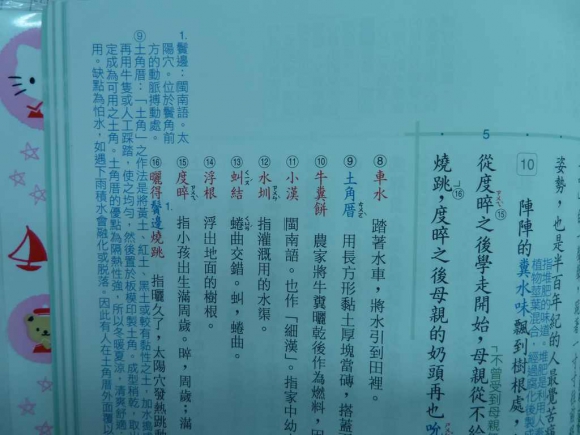 姿勢，也是半百年紀的人最覺苦
10 陣陣的糞水味飄到樹根處，
從度晬之後學走開始，母親從不給
燒跳，度晬之後母親的奶頭再也
5
⑧車水 踏著水車，將水引到田裡。
⑨土角厝 用長方形黏土厚塊當磚，搭蓋
⑩牛糞餅 農家將牛糞曬乾後作為燃料，因
⑪小漢 閩南語。也作「細漢」。指家中幼
⑫水圳 指灌溉用的水渠。
⑬虯結 蜷曲交錯。虯，蜷曲。
⑭浮根 浮出地面的樹根。
⑮度晬 指小孩出生滿周歲。晬，周歲；滿
⑯曬得鬢邊燒跳 指曬久了，太陽穴發熱跳動
1. 鬢邊：閩南語。太
陽穴。位於鬢角前
方的動脈搏動處。
⑨土角厝：「土角」之作法是將黃土、紅土、黑土或較有黏性之土，加水搗
再用牛隻或人工踩踏，使之均勻，然後置於板模印製土角。成型稍乾，取出
定成為可用之土角。土角厝的優點為隔熱性強，所以冬暖夏涼，清爽舒適，
用。缺點為怕水，如遇下雨積水會融化或脫落。因此有人在土角厝外面覆以